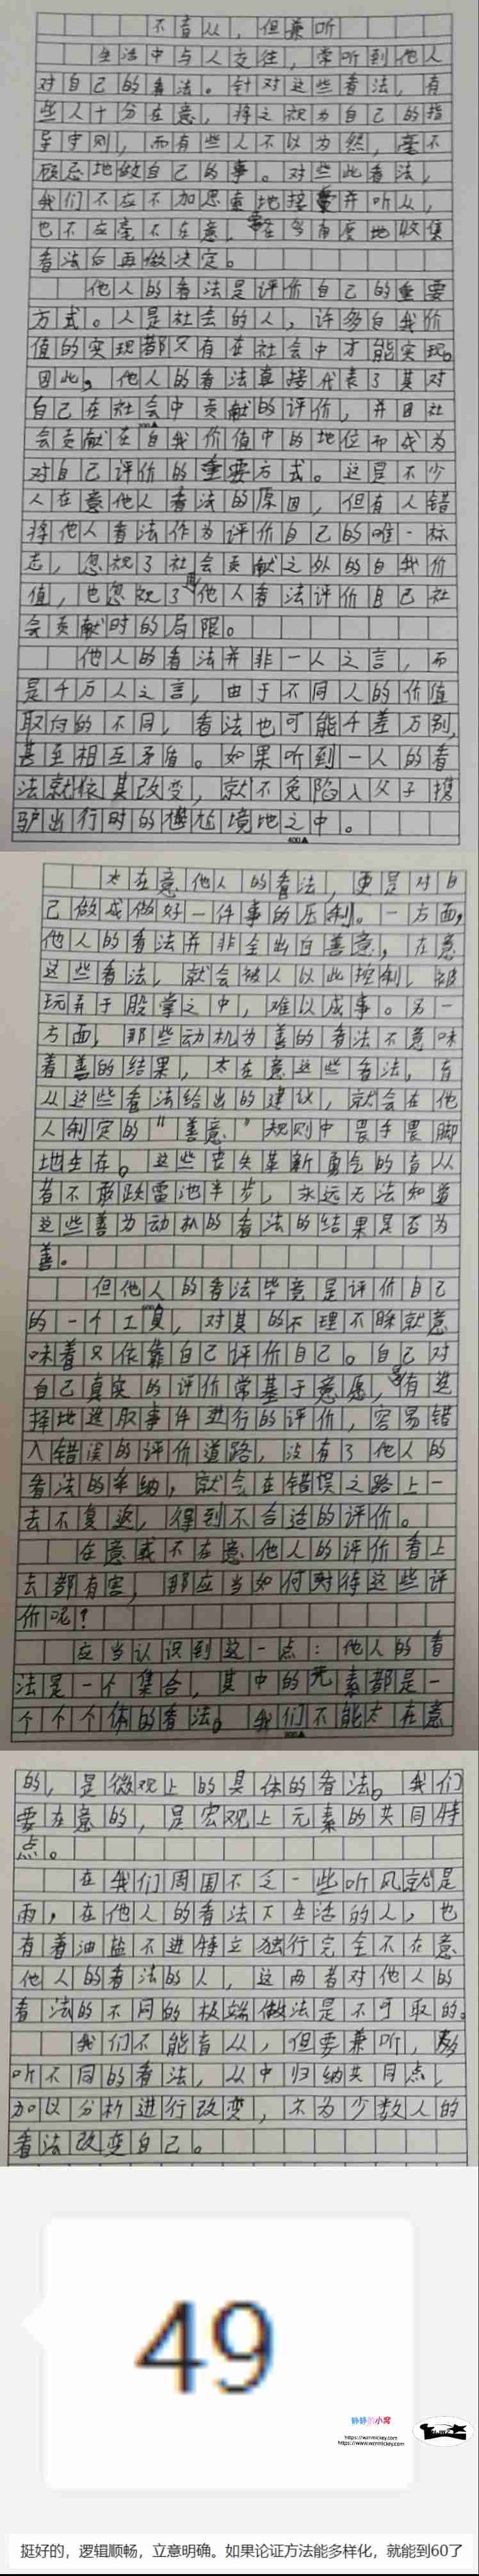 不盲从，但兼听
生活中与人交往，常听到他人
对自己的看法。针对这些看法，有
些人十分在意，将之视为自己的指
导守则，而有些人不以为然，毫不
顾忌地做自己的事。对些此看法，
我们不应不加思索地接受并听从，
也不应毫不在意，应有度地收集
看法后再做决定。
他人的看法是评价自己的重要
方式。人是社会的人，许多自我价
值的实现都只有在社会中才能实现。
因此，他人的看法直接代表了其对
自己在社会中贡献的评价，并因社
会贡献在自我价值中的地位而成为
对自己评价的重要方式。这是不少
人在意他人看法的原因，但有人错
将他人看法作为评价自己的唯一标
志，忽视了社会贡献之外的自我价
值，也忽视了他人看法评价自己社
会贡献时的局限。
他人的看法并非一人之言，而
是千万人之言，由于不同人的价值
取向的不同，看法也可能千差万别，
甚至相互矛盾。如果听到一人的看
法就依其改变，就不免陷入父子携
驴出行时的尴尬境地之中。
400▲
太在意他人的看法，更是对自
己做成做好一件事的压制。一方面，
他人的看法并非全出自善意，在意
这些看法，就会被人以此控制，被
玩弄于股掌之中，难以成事。另一
方面，那些动机为善的看法不意味
着善的结果，太在意这些看法，盲
从这些看法给出的建议，就会在他
人制定的“善意”规则中畏手畏脚
地生存。这些丧失革新勇气的盲从
者不敢跃雷池半步，永远无法知道
这些善为动机的看法的结果是否为
善。
但他人的看法毕竟是评价自己
的一个工具，对其的不理不睬就意
味着只依靠自己评价自己。自己对
自己真实的评价常基于意愿，是有选
择地选取事件进行的评价，容易错
入错误的评价道路，没有了他人的
看法的参纳，就会在错误之路上一
去不复返，得到不合适的评价。
在意或不在意他人的评价看上
去都有害，那应当如何对待这些评
价呢？
应当认识到这一点：他人的看
法是一个集合，其中的元素都是一
个个个体的看法。我们不能太在意
800▲
的，是微观上的具体的看法。我们
要在意的，是宏观上元素的共同特
点。
在我们周围不乏一些听风就是
雨，在他人的看法下生活的人，也
有着油盐不进特立独行完全不在意
他人的看法的人，这两者对他人的
看法的不同的极端做法是不可取的。
我们不能盲从，但要兼听，多
听不同的看法，从中归纳共同点，
加以分析进行改变，不为少数人的
看法改变自己。
49
静静的小窝
挺好的，逻辑顺畅，立意明确。如果论证方法能多样化，就能到60了